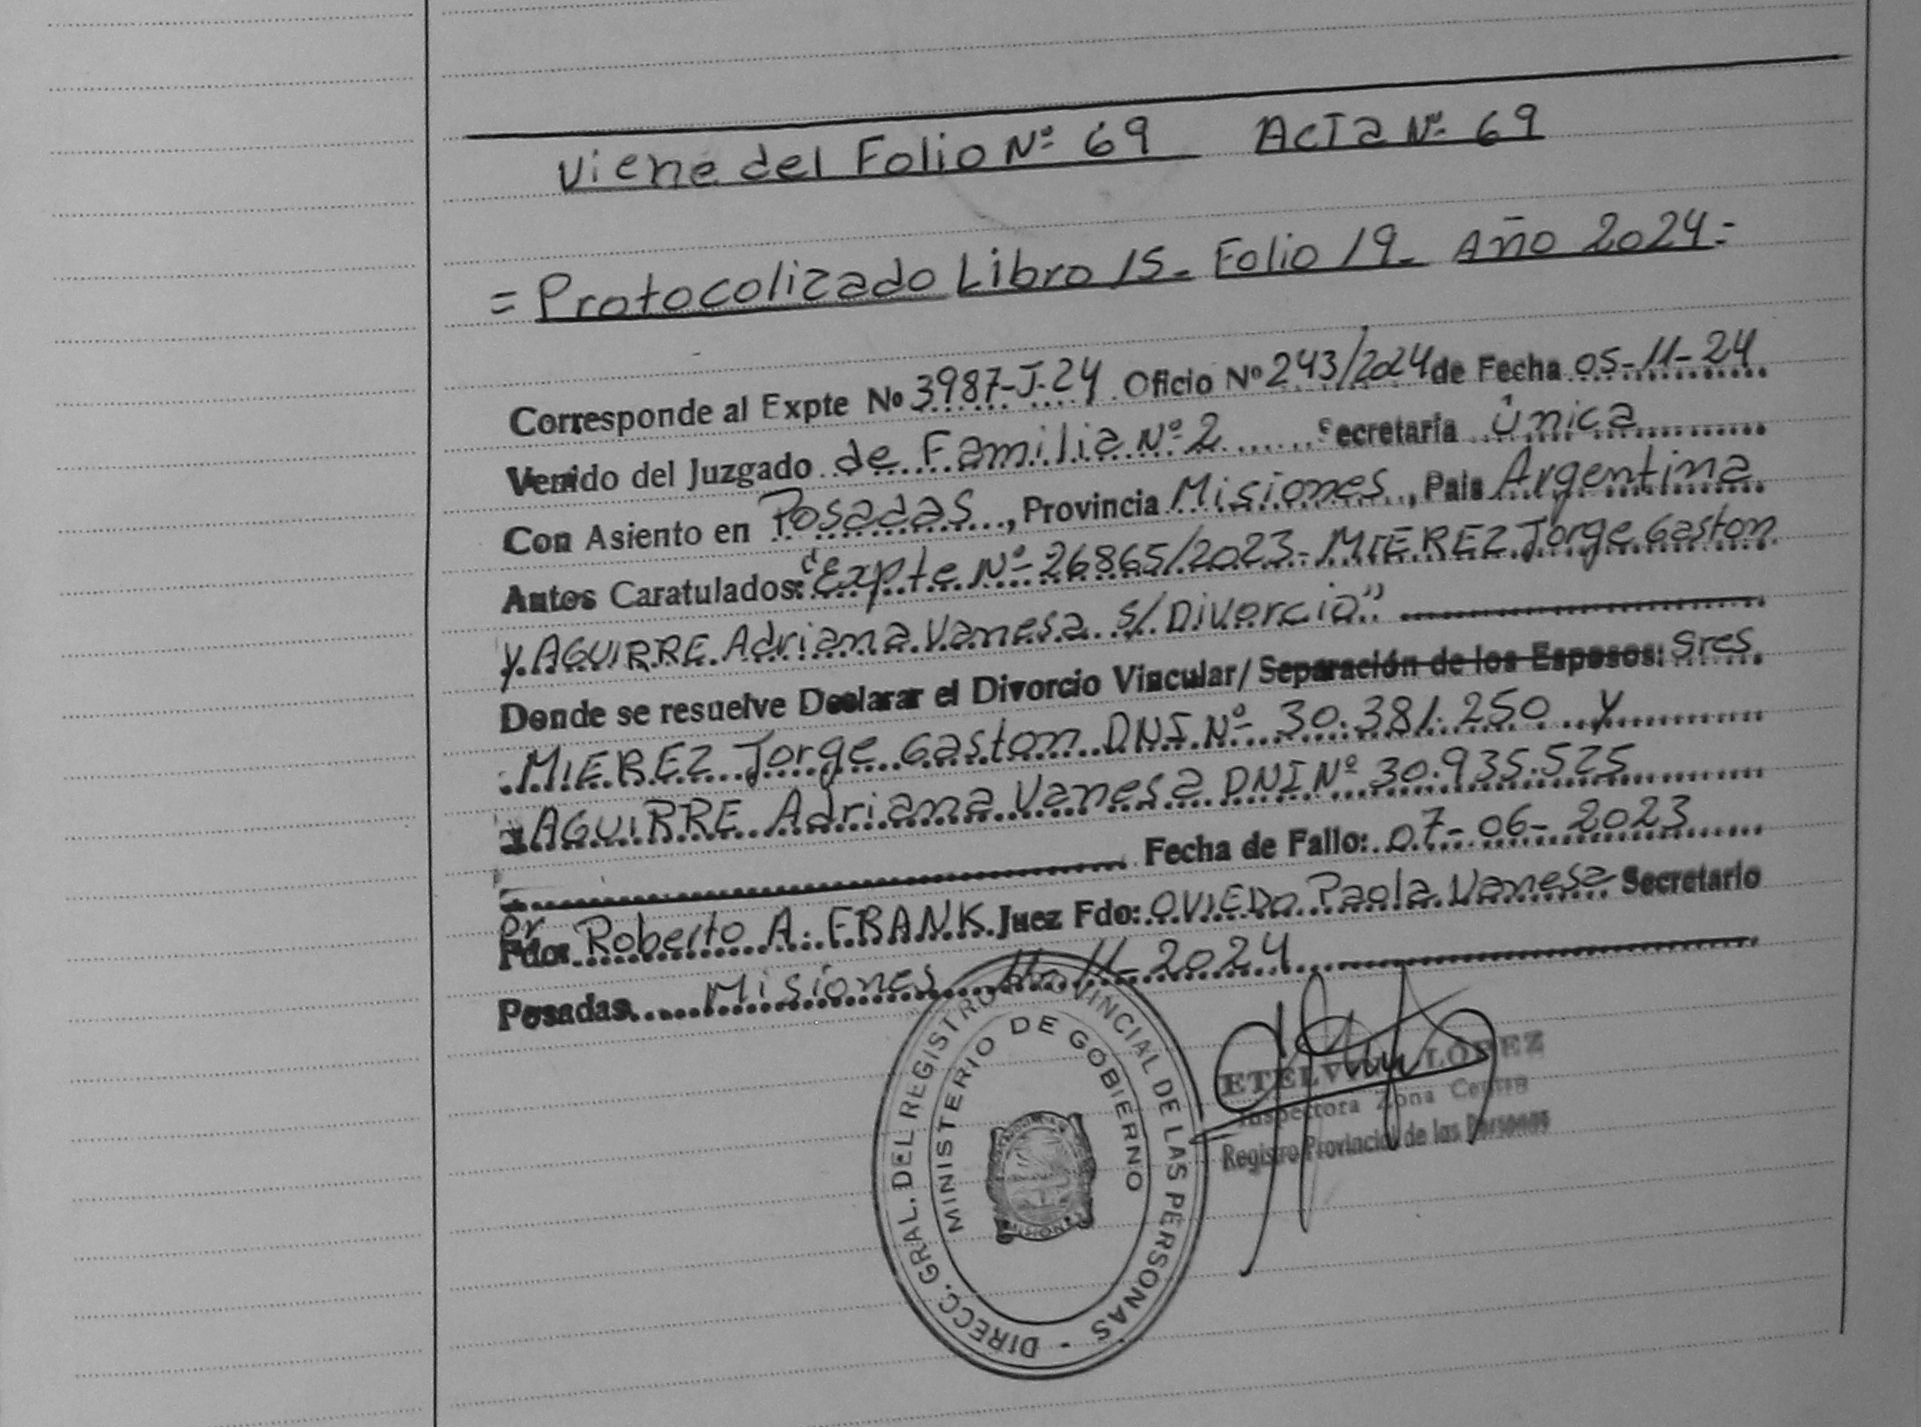 Viene del Folio Nº 69 Acta Nº 69
= Protocolizado Libro 15- Folio 19- Año 2024=
Corresponde al Expte Nº 3987-J-24 Oficio Nº 243/2024 de Fecha 05-11-24
Venido del Juzgado de Familia Nº 2 Secretaria Única
Con Asiento en Posadas, Provincia Misiones, Pais Argentina
Autos Caratulados: "Expte Nº 26865/2023- MIEREZ Jorge Gaston
y AGUIRRE Adriana Vanesa s/Divorcio"
Donde se resuelve Declarar el Divorcio Vincular/ Separación de los Esposos: Sres
MIEREZ Jorge Gaston DNI Nº 30.381.250 y
AGUIRRE Adriana Vanesa DNI Nº 30.935.525
Fecha de Fallo: 07-06-2023
Dr
Fdo: Roberto A. FRANK Juez Fdo: OVIEDO Paola Vanesa Secretario
Posadas Misiones 11-11-2024
DIRECC. GRAL. DEL REGISTRO PROVINCIAL DE LAS PERSONAS -
MINISTERIO DE GOBIERNO
MISIONES
LÓPEZ
Inspectora Zona Centro
Registro Provincial de las Personas